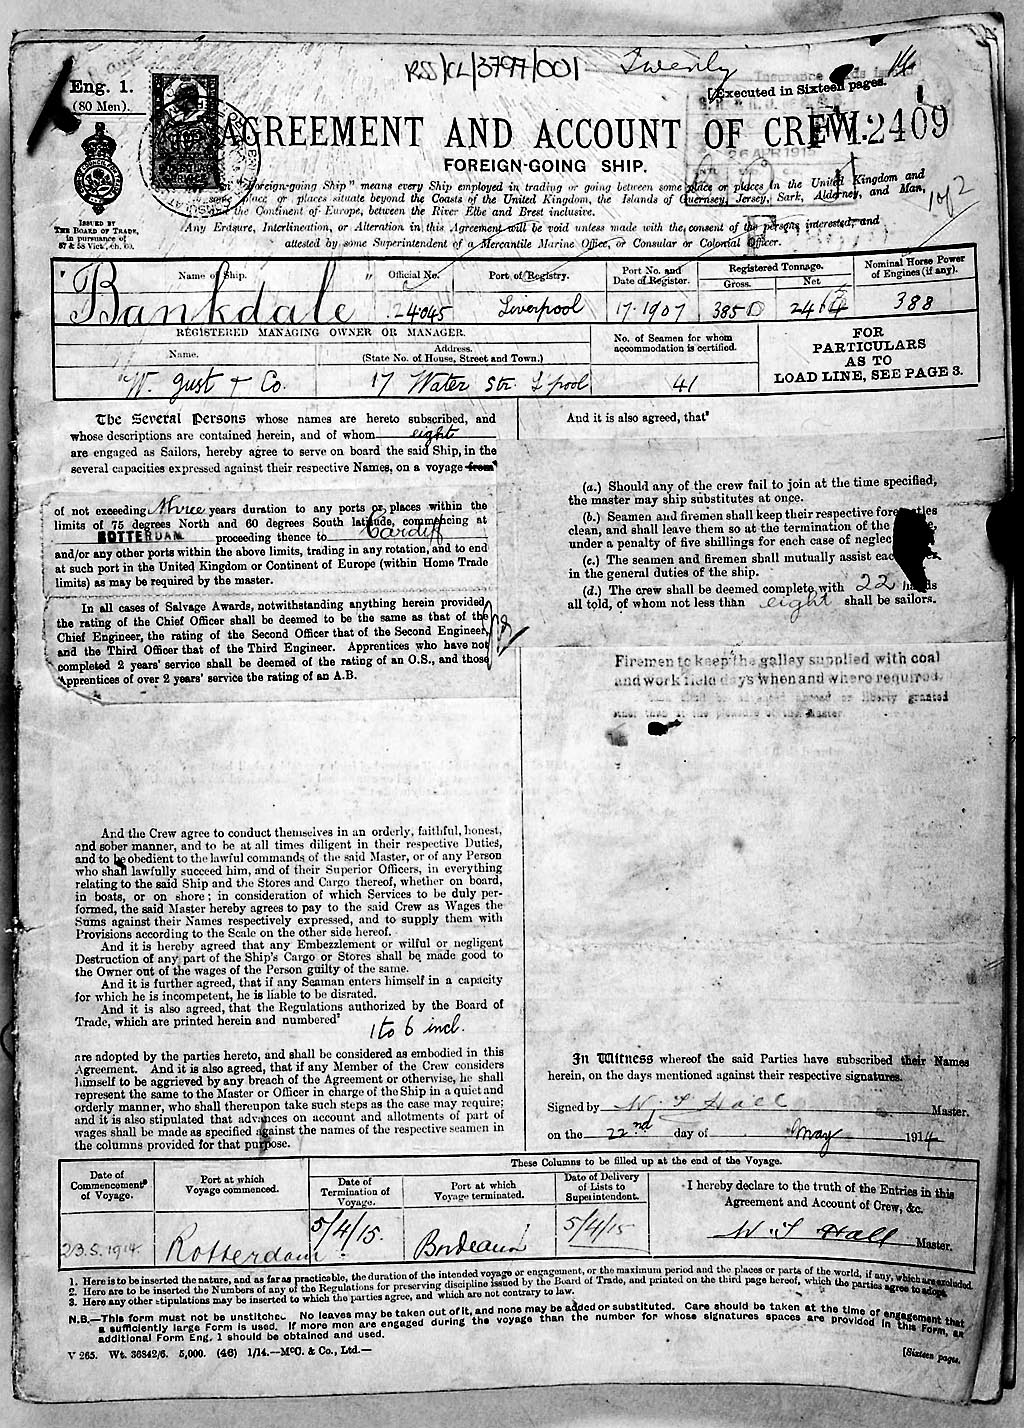 RSS/CL/3797/001
Twenty
Insurance
Eng. 1.
(80 Men).
[Executed in Sixteen pages.
AGREEMENT AND ACCOUNT OF CREW.
2409
FOREIGN-GOING SHIP.
26 APR 1915
1 of 2
ISSUED BY
THE BOARD OF TRADE,
in pursuance of
57 & 58 Vict., ch. 60.
"Foreign-going Ship" means every Ship employed in trading or going between some place or places in the United Kingdom and
some place or places situate beyond the Coasts of the United Kingdom, the Islands of Guernsey, Jersey, Sark, Alderney, and Man,
the Continent of Europe, between the River Elbe and Brest inclusive.
Any Erasure, Interlineation, or Alteration in this Agreement will be void unless made with the consent of the persons interested, and
attested by some Superintendent of a Mercantile Marine Office, or Consular or Colonial Officer.
Name of Ship.
Official No.
Port of Registry.
Port No. and
Date of Register.
Registered Tonnage.
Gross.
Net
Nominal Horse Power
of Engines (if any).
"Bankdale"
124045
Liverpool
17. 1907
3850
388
REGISTERED MANAGING OWNER OR MANAGER.
Name.
Address.
(State No. of House, Street and Town.)
No. of Seamen for whom
accommodation is certified.
FOR
PARTICULARS
AS TO
LOAD LINE, SEE PAGE 3.
W. Just & Co.
17 Water Str. L'pool
41
The Several Persons whose names are hereto subscribed, and
whose descriptions are contained herein, and of whom eight
are engaged as Sailors, hereby agree to serve on board the said Ship, in the
several capacities expressed against their respective Names, on a voyage from¹
of not exceeding three years duration to any ports or places within the
limits of 75 degrees North and 60 degrees South latitude, commencing at
ROTTERDAM proceeding thence to Cardiff
and/or any other ports within the above limits, trading in any rotation, and to end
at such port in the United Kingdom or Continent of Europe (within Home Trade
limits) as may be required by the master.
In all cases of Salvage Awards, notwithstanding anything herein provided,
the rating of the Chief Officer shall be deemed to be the same as that of the
Chief Engineer, the rating of the Second Officer that of the Second Engineer,
and the Third Officer that of the Third Engineer. Apprentices who have not
completed 2 years' service shall be deemed of the rating of an O.S., and those
Apprentices of over 2 years' service the rating of an A.B.
And the Crew agree to conduct themselves in an orderly, faithful, honest,
and sober manner, and to be at all times diligent in their respective Duties,
and to be obedient to the lawful commands of the said Master, or of any Person
who shall lawfully succeed him, and of their Superior Officers, in everything
relating to the said Ship and the Stores and Cargo thereof, whether on board,
in boats, or on shore; in consideration of which Services to be duly per-
formed, the said Master hereby agrees to pay to the said Crew as Wages the
Sums against their Names respectively expressed, and to supply them with
Provisions according to the Scale on the other side hereof.
And it is hereby agreed that any Embezzlement or wilful or negligent
Destruction of any part of the Ship's Cargo or Stores shall be made good to
the Owner out of the wages of the Person guilty of the same.
And it is further agreed, that if any Seaman enters himself in a capacity
for which he is incompetent, he is liable to be disrated.
And it is also agreed, that the Regulations authorized by the Board of
Trade, which are printed herein and numbered²
1 to 6 incl.
are adopted by the parties hereto, and shall be considered as embodied in this
Agreement. And it is also agreed, that if any Member of the Crew considers
himself to be aggrieved by any breach of the Agreement or otherwise, he shall
represent the same to the Master or Officer in charge of the Ship in a quiet and
orderly manner, who shall thereupon take such steps as the case may require;
and it is also stipulated that advances on account and allotments of part of
wages shall be made as specified against the names of the respective seamen in
the columns provided for that purpose.
And it is also agreed, that³
(a.) Should any of the crew fail to join at the time specified,
the master may ship substitutes at once.
(b.) Seamen and firemen shall keep their respective forecastles
clean, and shall leave them so at the termination of the
under a penalty of five shillings for each case of neglec
(c.) The seamen and firemen shall mutually assist each
in the general duties of the ship.
(d.) The crew shall be deemed complete with 22 hands
all told, of whom not less than eight shall be sailors.
Firemen to keep the galley supplied with coal
and work field days when and where required.
or liberty granted
other than at the pleasure of the Master
In Witness whereof the said Parties have subscribed their Names
herein, on the days mentioned against their respective signatures.
Signed by W. S Hall Master.
on the 22nd day of May 1914
Date of
Commencement
of Voyage.
Port at which
Voyage commenced.
These Columns to be filled up at the end of the Voyage.
Date of
Termination of
Voyage.
Port at which
Voyage terminated.
Date of Delivery
of Lists to
Superintendent.
I hereby declare to the truth of the Entries in this
Agreement and Account of Crew, &c.
23.5.1914
Rotterdam
5/4/15.
Bordeaux
5/4/15
W. S Hall Master.
1. Here is to be inserted the nature, and as far as practicable, the duration of the intended voyage or engagement, or the maximum period and the places or parts of the world, if any, which are excluded.
2. Here are to be inserted the Numbers of any of the Regulations for preserving discipline issued by the Board of Trade, and printed on the third page hereof, which the parties agree to adopt.
3. Here any other stipulations may be inserted to which the parties agree, and which are not contrary to law.
N.B.—This form must not be unstitched. No leaves may be taken out of it, and none may be added or substituted. Care should be taken at the time of engagement that
a sufficiently large Form is used. If more men are engaged during the voyage than the number for whose signatures spaces are provided in this Form, an
additional Form Eng. 1 should be obtained and used.
V 265. Wt. 36842/6. 5,000. (46) 1/14.—McC. & Co., Ltd.—
[Sixteen pages.